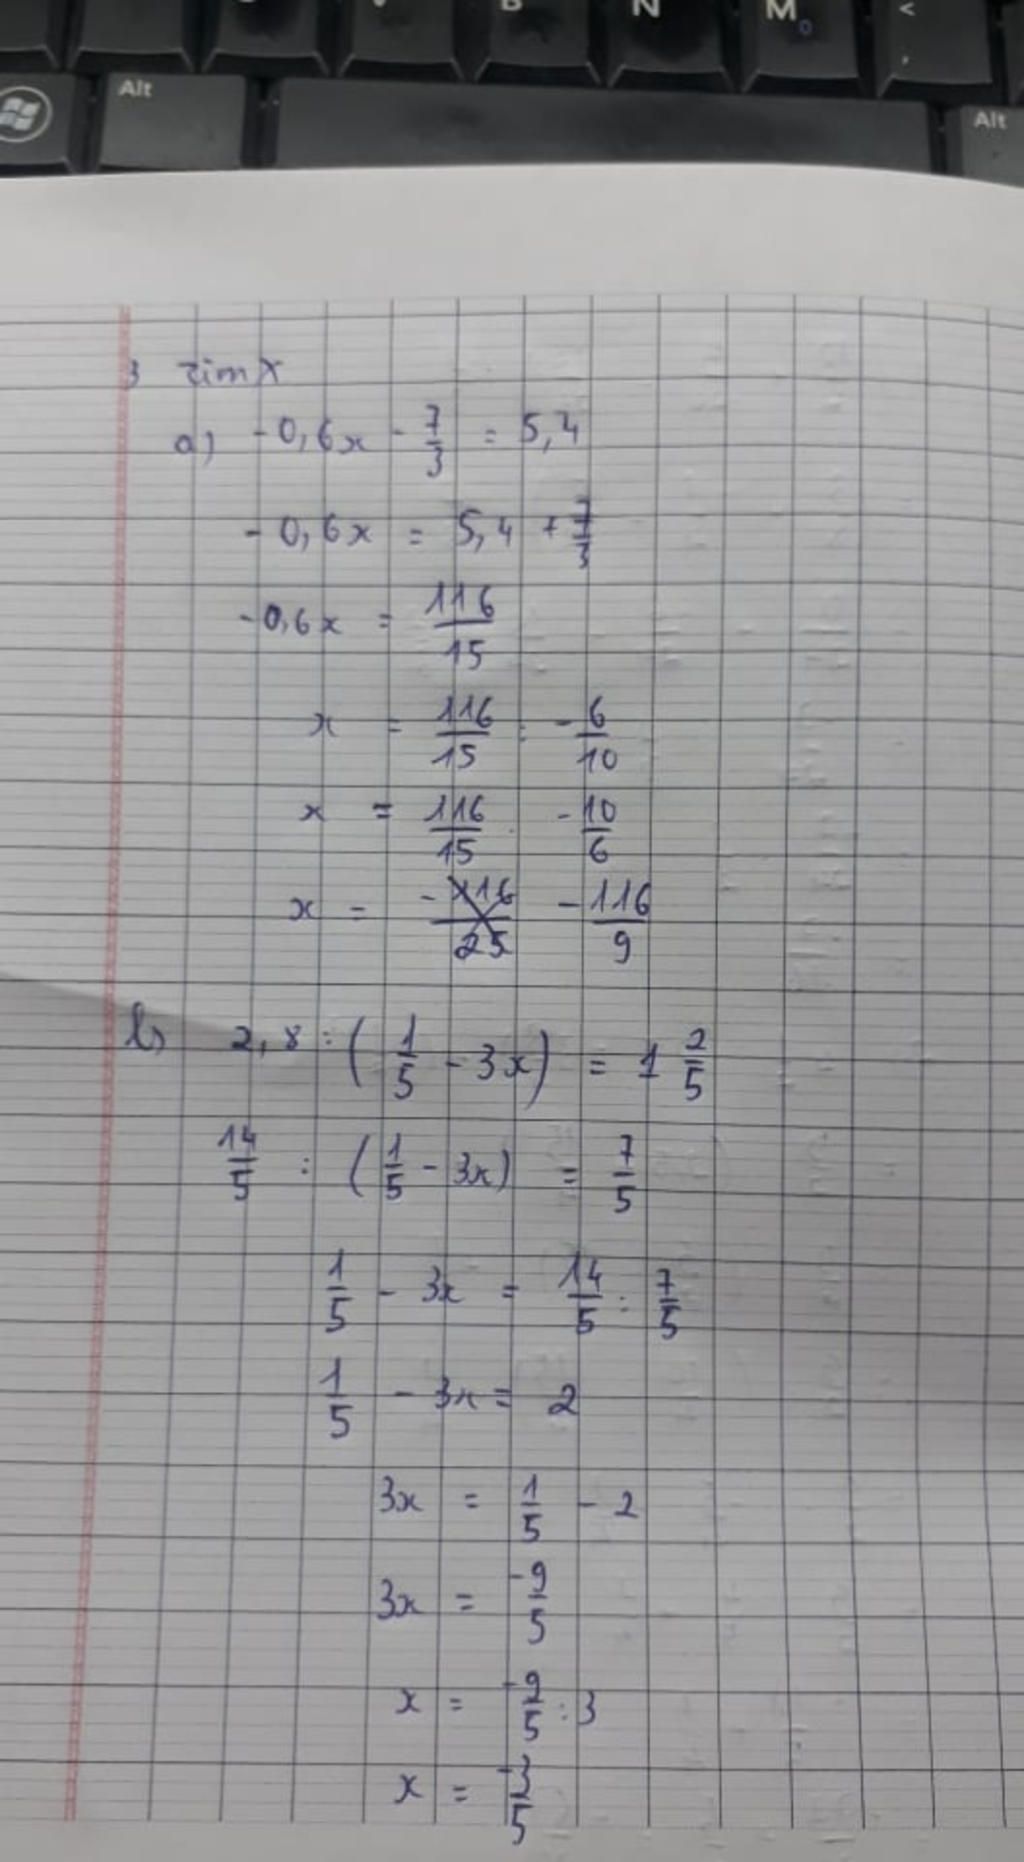 B N M <
Alt Alt
3 Tìm X
a) -0,6x - 7/3 = 5,4
-0,6x = 5,4 + 7/3
-0,6x = 116/15
x = 116/15 : -6/10
x = 116/15 . -10/6
x = -116/25 -116/9
b) 2,8 : (1/5 - 3x) = 1 2/5
14/5 : (1/5 - 3x) = 7/5
1/5 - 3x = 14/5 : 7/5
1/5 - 3x = 2
3x = 1/5 - 2
3x = -9/5
x = -9/5 : 3
x = -3/5